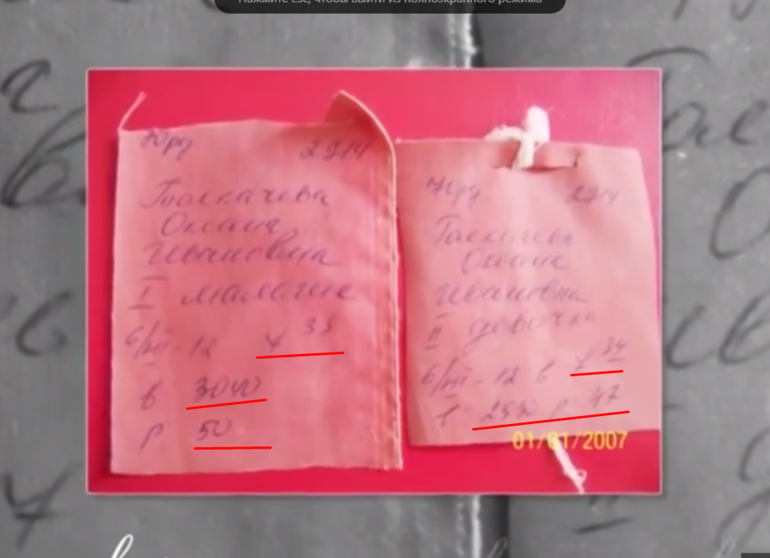 Нажмите Esc, чтобы выйти из полноэкранного режима
2914
Толкачева
Оксана
Ивановна
I мальчик
6/VII-12 7 33
в 3040
р 50
2914
Толкачева
Оксана
Ивановна
II девочка
6/VII-12 в 7 34
в 2540 р 47
01/01/2007